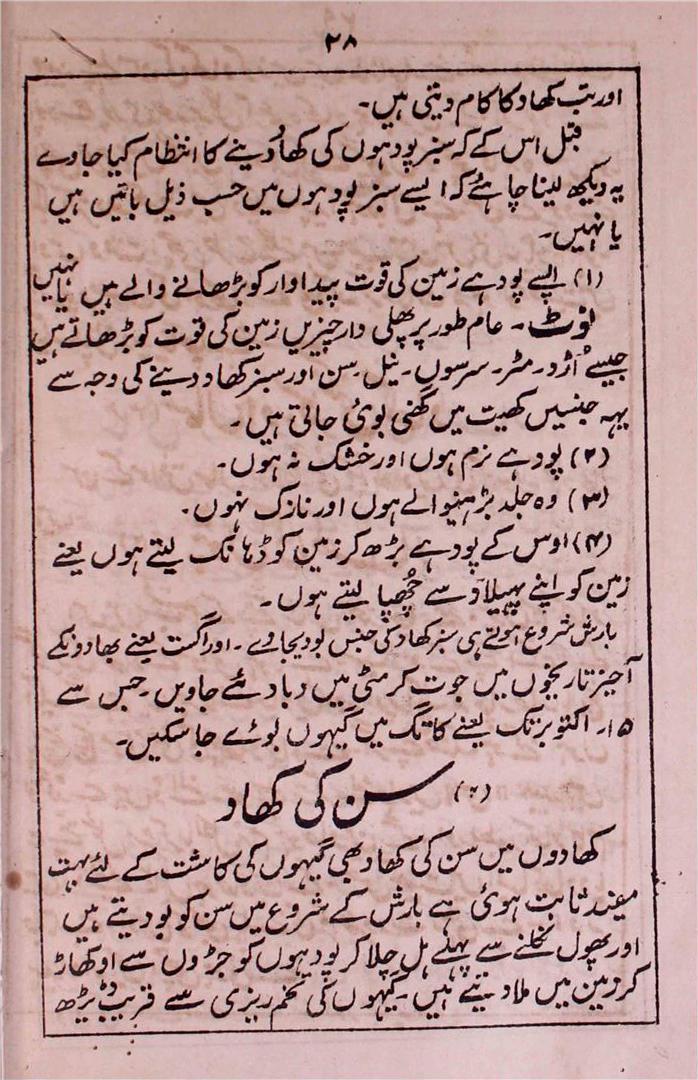 ۲۸
اور تب کھاد کا کام دیتی ہیں۔
قبل اس کے کہ سبز پودہوں کی کھاد دینے کا انتظام کیا جاوے
یہ دیکھ لینا چاہئے کہ ایسے سبز پودہوں میں حسب ذیل باتیں ہیں
یا نہیں۔
(۱) ایسے پودہے زمین کی قوت پیداوار کو بڑھانے والے ہیں یا نہیں
نوٹ۔ عام طور پر پھلی دار چیزیں زمین کی قوت کو بڑھاتے ہیں
جیسے اُڑد۔ مٹر۔ سرسوں۔ نیل۔ سن اور سبز کھاد دینے کی وجہ سے
یہہ جنسیں کھیت میں گھنی بوئی جاتی ہیں۔
(۲) پودہے نرم ہوں اور خشک نہ ہوں۔
(۳) وہ جلد بڑہنیوالے ہوں اور نازک نہوں۔
(۴) اوس کے پودہے بڑھ کر زمین کو ڈہانک لیتے ہوں یعنے
زمین کو اپنے پھیلاؤ سے چُھپا لیتے ہوں۔
بارش شروع ہوتے ہی سبز کھاد کی جنس بودیجاوے۔ اور اگست یعنے بھادوں کے
آخیر تاریخوں میں جوت کر مٹی میں دبا دئے جاویں۔ جس سے
۱۵۔ اکتوبر تک یعنے کاتک میں گیہوں بوئے جا سکیں۔
(۲) سن کی کھاد
کھادوں میں سن کی کھاد بھی گیہوں کی کاشت کے لئے بہت
مفید ثابت ہوئی ہے بارش کے شروع میں سن کو بو دیتے ہیں
اور پھول نکلنے سے پہلے ہل چلا کر پودہوں کو جڑوں سے اوکھاڑ
کر زمین میں ملا دیتے ہیں۔ گیہوں کی تخم ریزی سے قریب ڈیڑھ